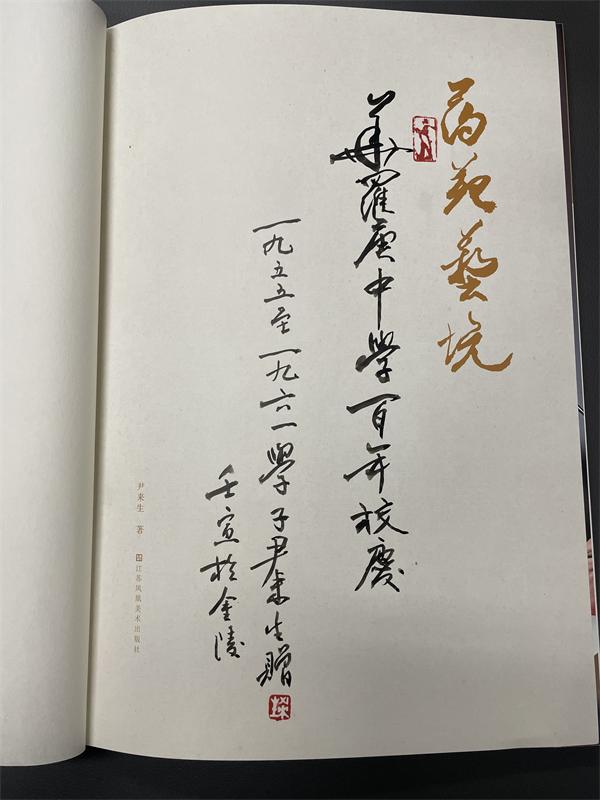 苑藝境
華羅庚中學百年校慶
一九五五至一九六一學子尹来生贈
壬寅於金陵
尹来生 著
江苏凤凰美术出版社